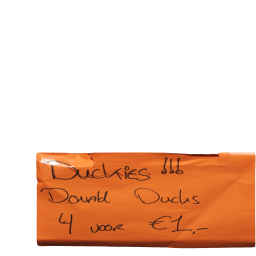 Duckies !!!
Donald Ducks
4 voor €1,-